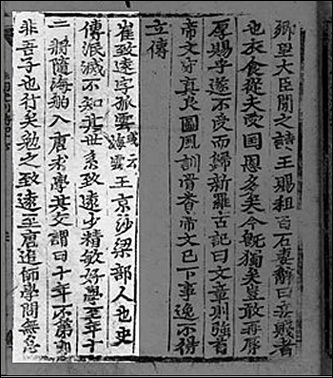 鄉里大臣聞之請王賜租百石妻辭曰妾賤者
也衣食從夫受國恩多矣今旣獨矣豈敢再辱
厚賜乎遂不受而歸新羅古記曰文章則強首
帝文守真良圖風訓骨沓帝文已下事逸不得
立傳
崔致遠字孤雲或云海雲王京沙梁部人也史
傳泯滅不知其世系致遠少精敏好學至年十
二將隨海舶入唐求學其父謂曰十年不第即
非吾子也行矣勉之致遠至唐追師學問無怠